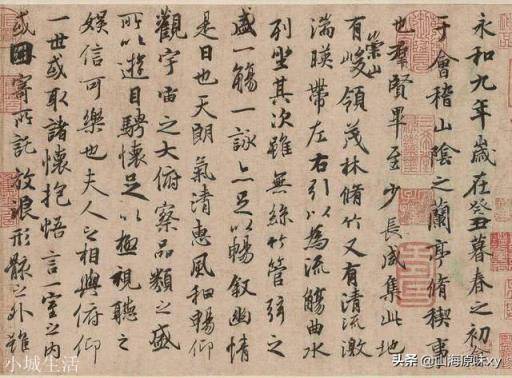 永和九年歲在癸丑暮春之初會
于會稽山陰之蘭亭脩稧事
也羣賢畢至少長咸集此地
有崇山峻領茂林脩竹又有清流激
湍暎帶左右引以為流觴曲水
列坐其次雖無絲竹管弦之
盛一觴一詠亦足以暢敘幽情
是日也天朗氣清惠風和暢仰
觀宇宙之大俯察品類之盛
所以遊目騁懷足以極視聽之
娛信可樂也夫人之相與俯仰
一世或取諸懷抱悟言一室之內
或因寄所託放浪形骸之外雖
小城生活
头条 @山海原味xy